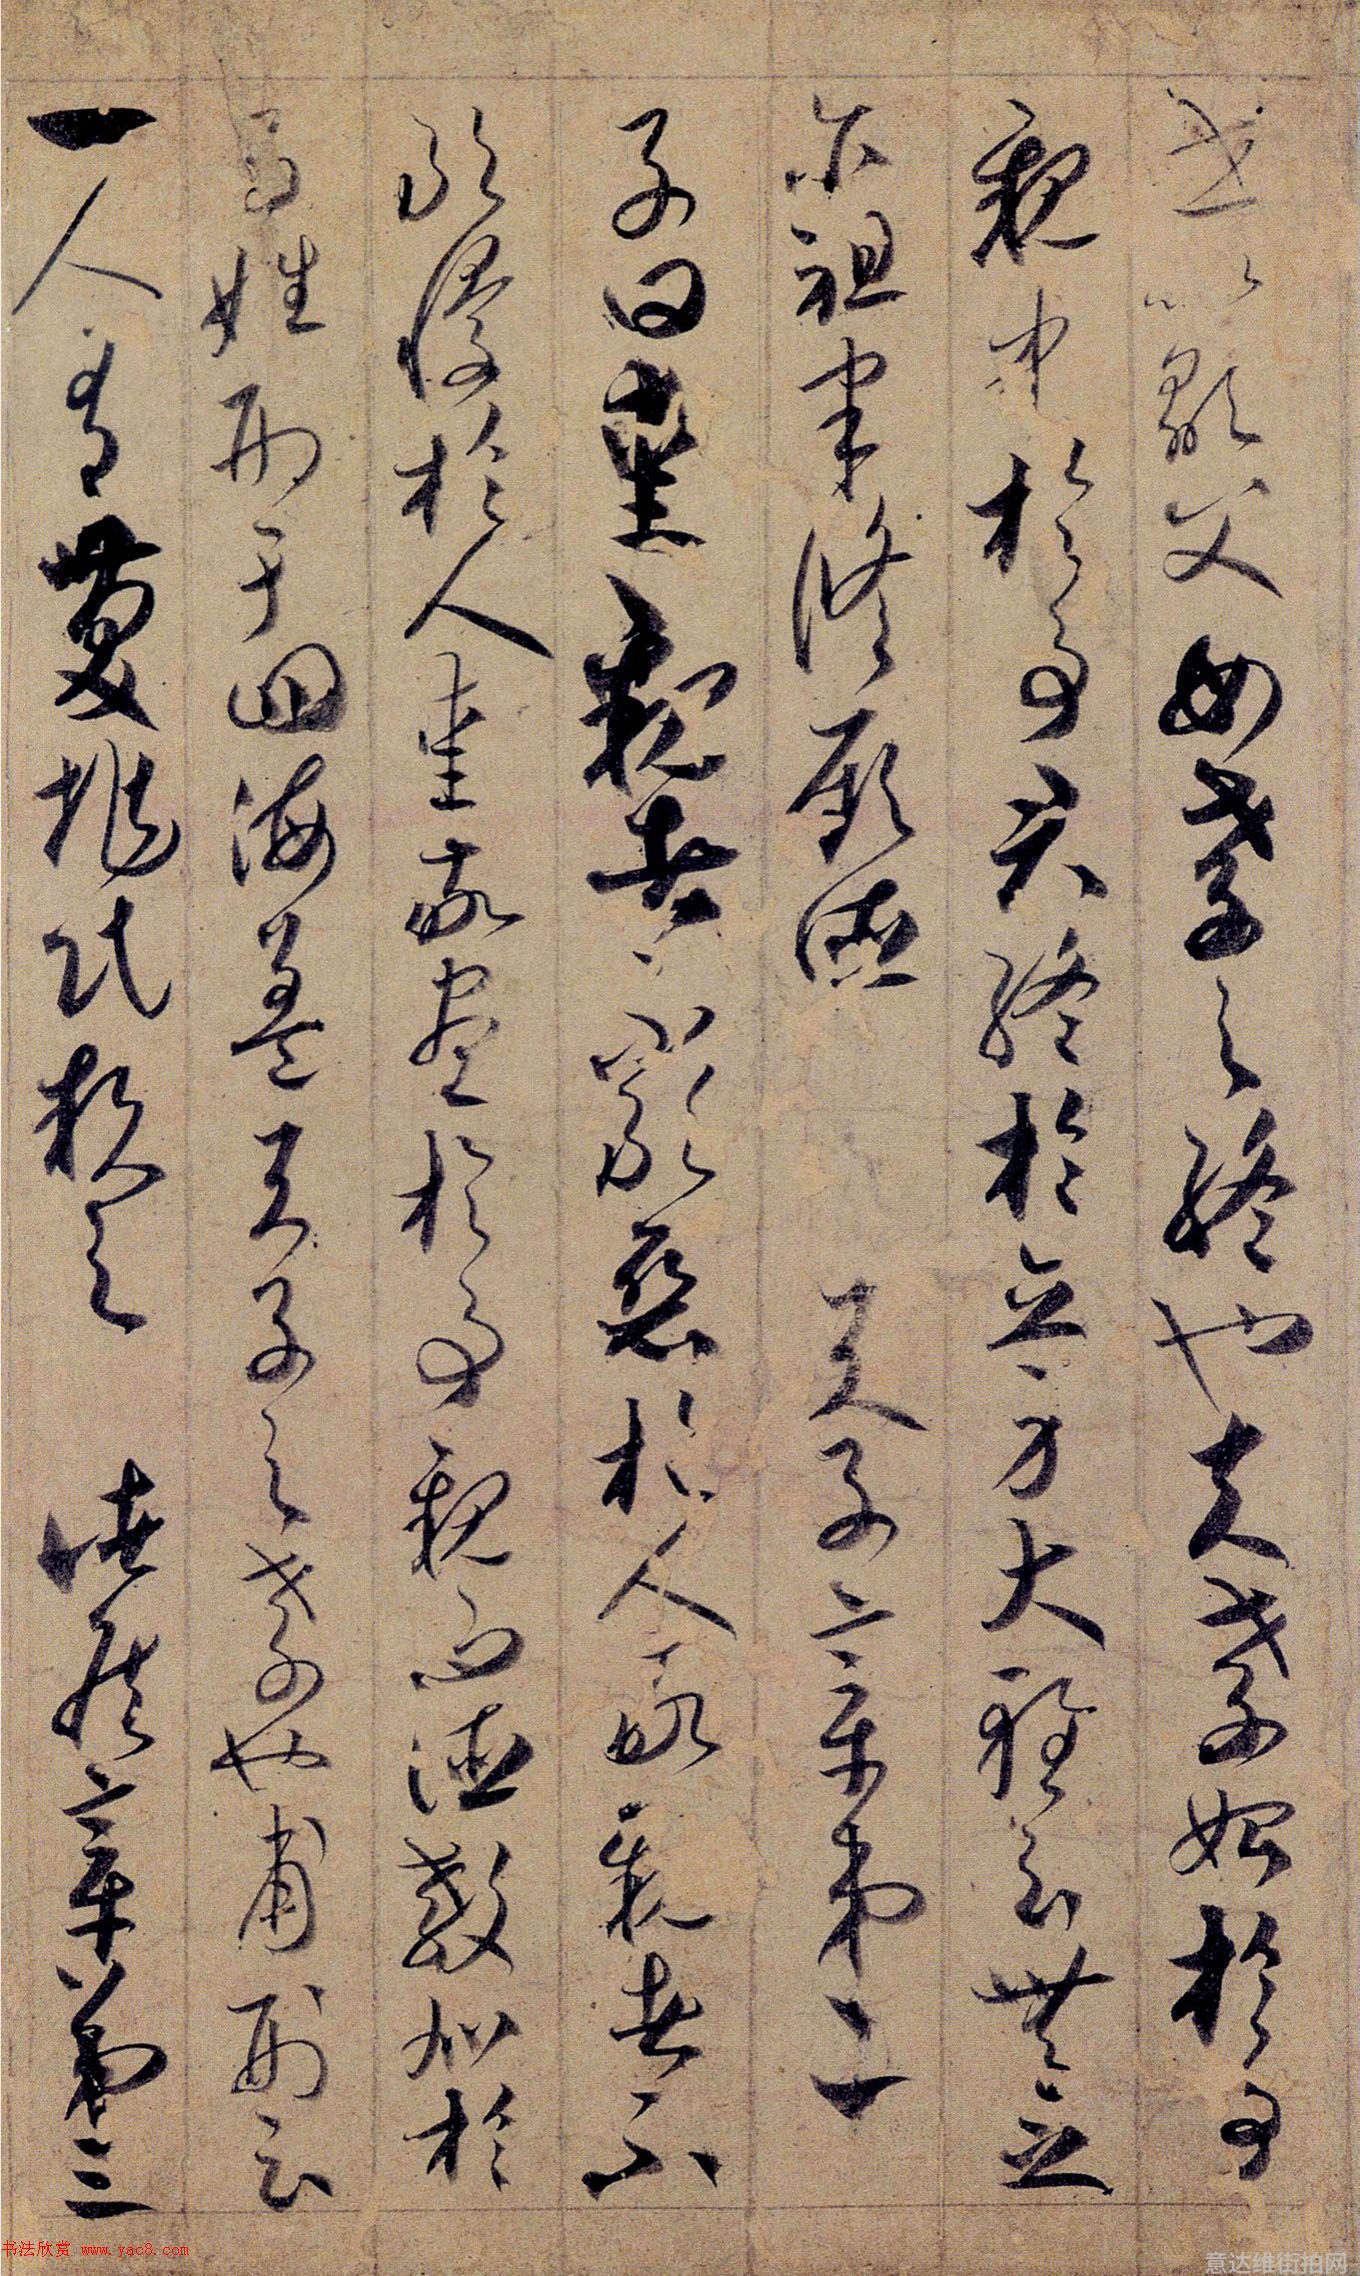 世以顯父母孝之終也夫孝始於事
親中於事君終於立身大雅云無念
尔祖聿脩厥德　天子章第二
子曰愛親者不敢惡於人敬親者不
敢慢於人愛敬盡於事親而德教加於
百姓刑于四海蓋天子之孝也甫刑云
一人有慶兆民賴之　諸侯章第三
书法欣赏 www.yac8.com
意达维街拍网